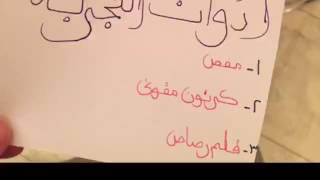 ادوات التجربة
١- مقص
٢- كرتون مقوى
٣- قلم رصاص